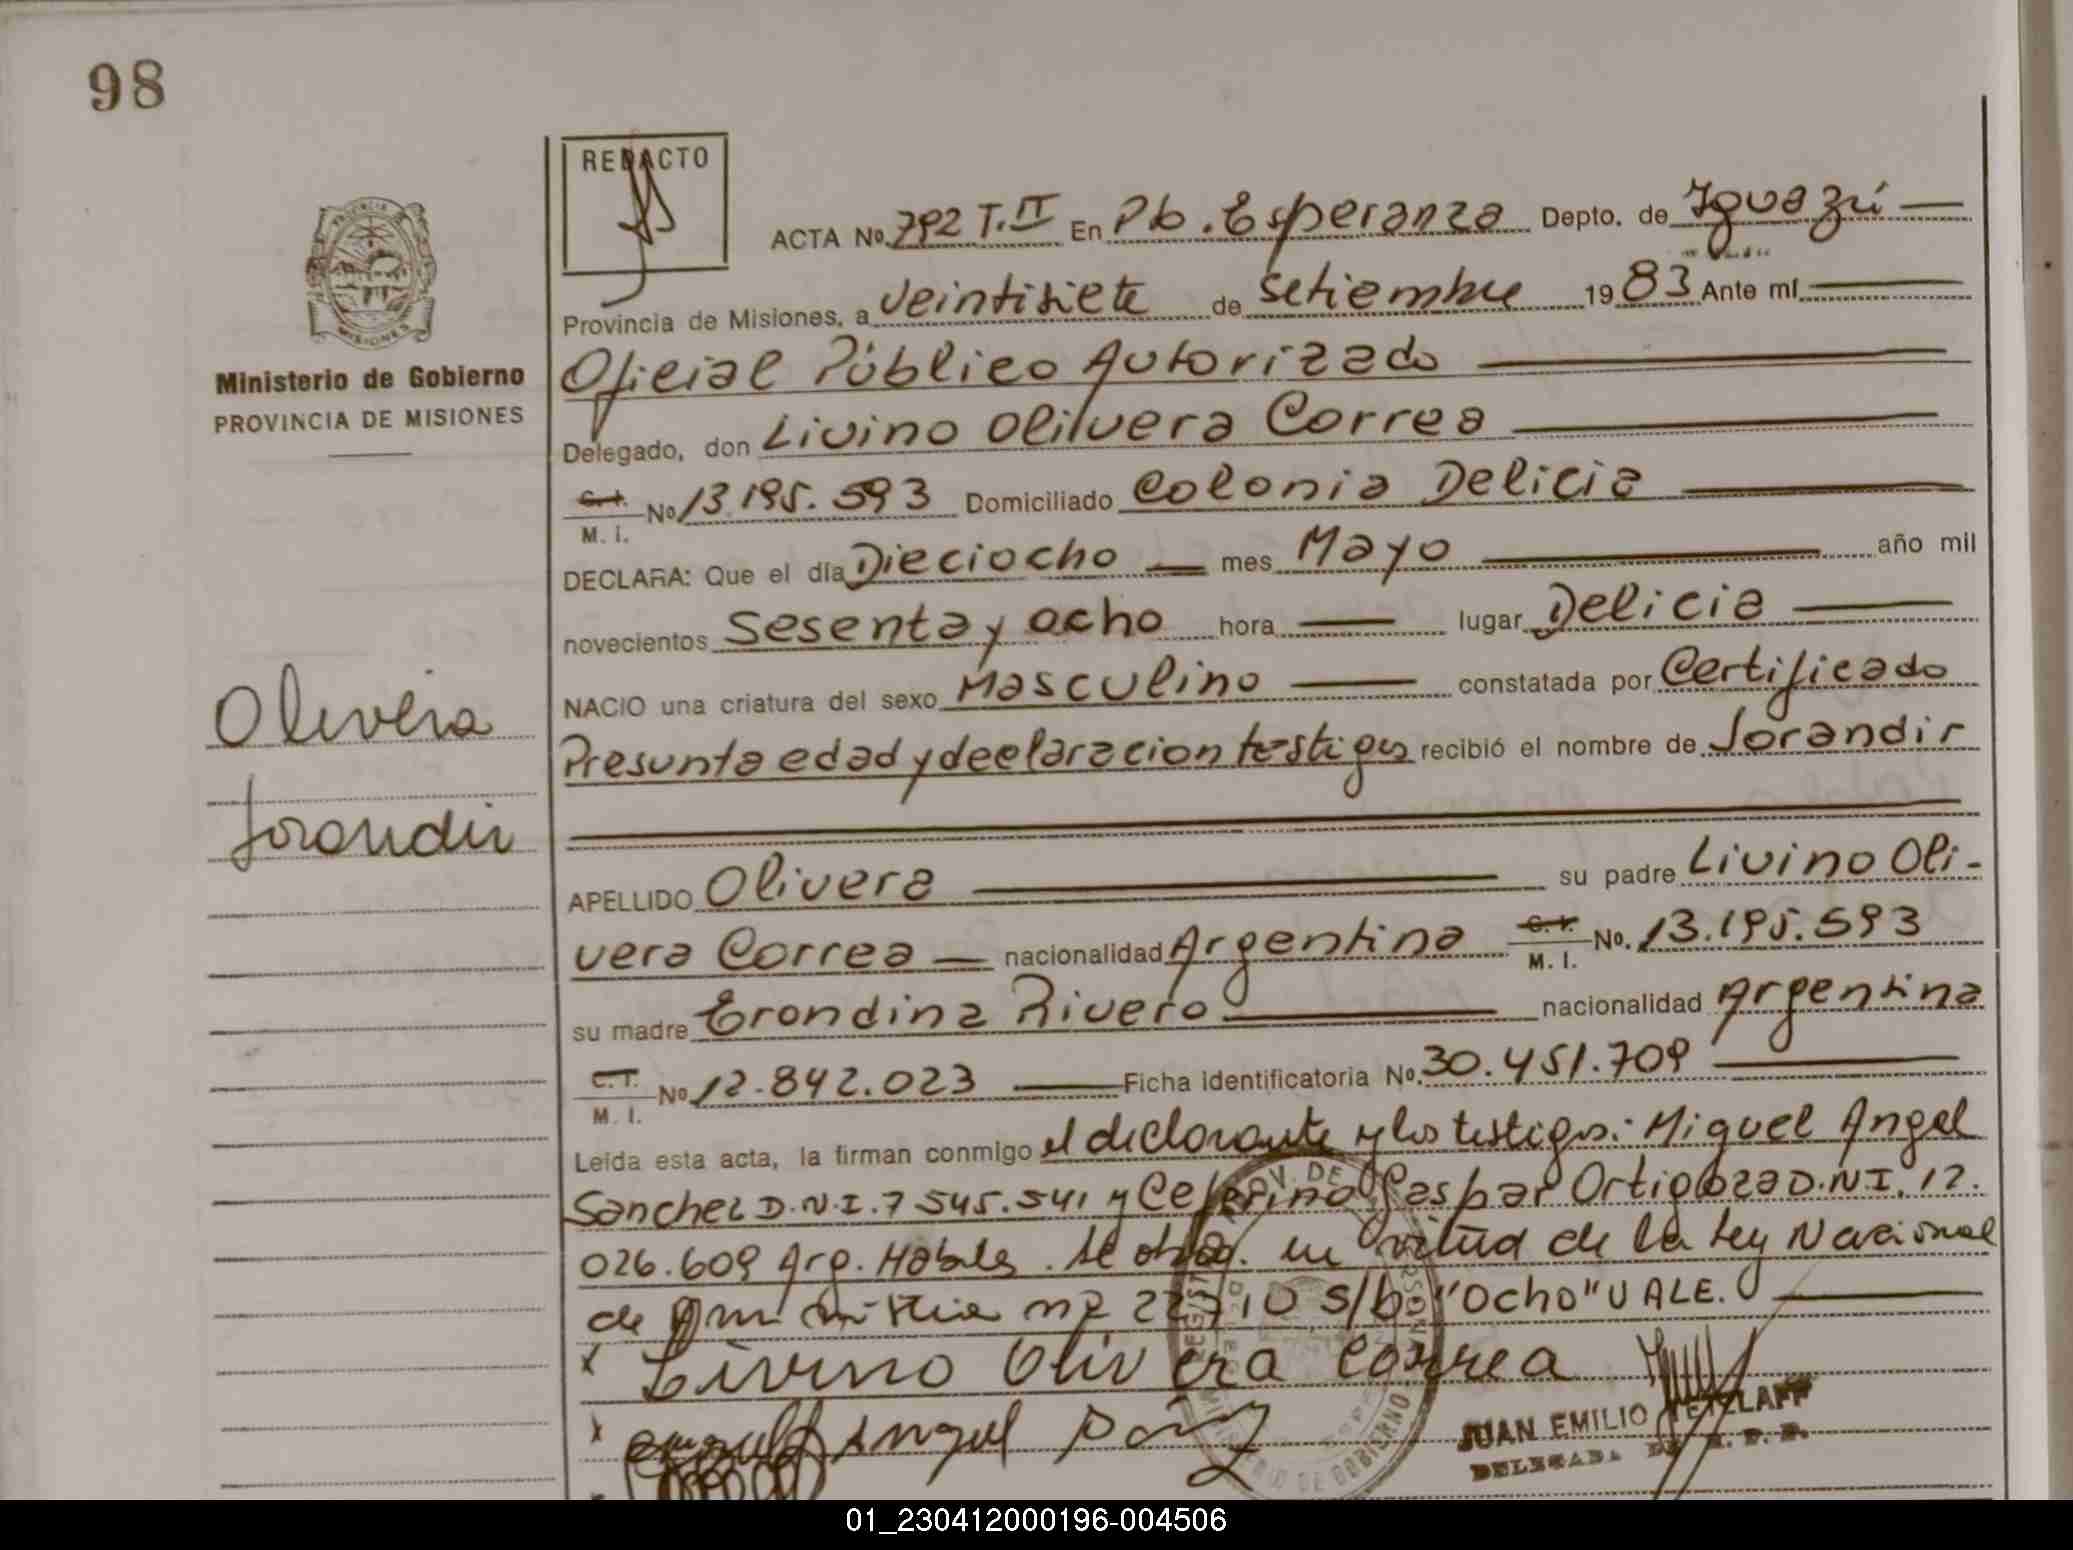 98
REDACTO
ACTA No. 792 T.II En Pto. Esperanza Depto. de Iguazú
Provincia de Misiones, a veintisiete de setiembre 1983 Ante mí
Oficial Público Autorizado
Ministerio de Gobierno
PROVINCIA DE MISIONES
Delegado, don Livino Olivera Correa
C.I. M. I. No 13.195.593 Domiciliado Colonia Delicia
DECLARA: Que el día Dieciocho mes Mayo año mil
novecientos Sesenta y ocho hora lugar Delicia
NACIO una criatura del sexo Masculino constatada por Certificado
Olivera
Presunta edad y declaracion testigos recibió el nombre de Jorandir
Jorandir
APELLIDO Olivera su padre Livino Oli-
vera Correa nacionalidad Argentina C.I. M. I. No. 13.195.593
su madre Erondina Rivero nacionalidad Argentina
C.I. M. I. No 12.842.023 Ficha identificatoria No. 30.451.709
Leída esta acta, la firman conmigo el declarante y los testigos: Miguel Angel
Sanchez D.N.I. 7.545.541 y Ceferino Gaspar Ortigoza D.N.I. 12.
026.609 Arg. Habils. Se en virtud de la Ley Nacional
de Amnistia nº 22710 s/b "Ocho" VALE.
x Livino Olivera Correa
x Angel
JUAN EMILIO TETZLAFF
DELEGADA
01_230412000196-004506